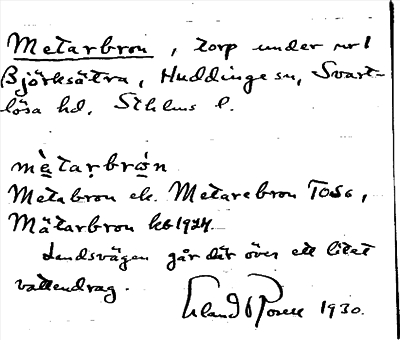 Metarbron, torp under nr 1
Björksätra, Huddinge sn, Svart-
lösa hd, Sthlms l.
mètarbrón
Metabron el. Metarebron TOSG,
Mätarbron kb 1924.
Landsvägen går där över ett litet
vattendrag.
Erland Rosell 1930.